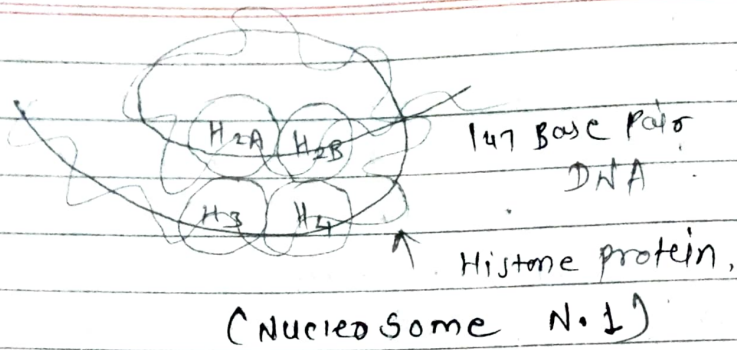 H2A H2B
147 Base Pair
DNA
H3 H4
Histone protein,
(Nucleosome No.1)